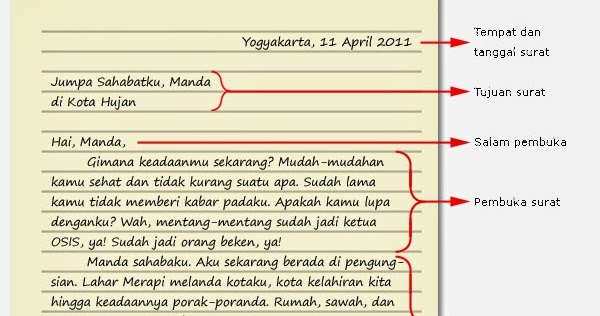 Yogyakarta, 11 April 2011
Tempat dan
tanggal surat
Jumpa Sahabatku, Manda
di Kota Hujan
Tujuan surat
Hai, Manda,
Salam pembuka
Gimana keadaanmu sekarang? Mudah-mudahan
kamu sehat dan tidak kurang suatu apa. Sudah lama
kamu tidak memberi kabar padaku. Apakah kamu lupa
denganku? Wah, mentang-mentang sudah jadi ketua
OSIS, ya! Sudah jadi orang beken, ya!
Pembuka surat
Manda sahabaku. Aku sekarang berada di pengung-
sian. Lahar Merapi melanda kotaku, kota kelahiran kita
hingga keadaannya porak-poranda. Rumah, sawah, dan